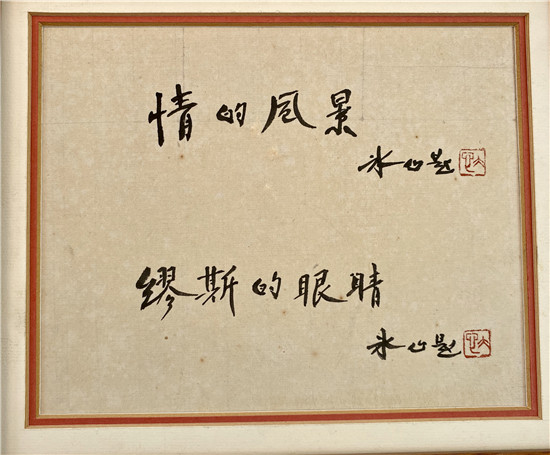 情的风景
冰心题
缪斯的眼睛
冰心题